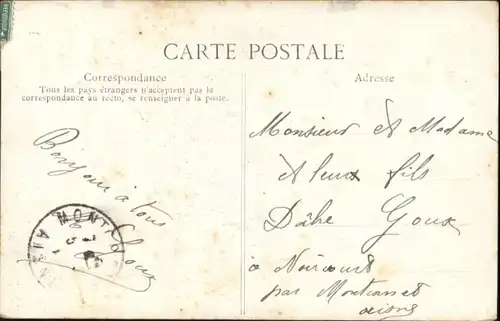 CARTE POSTALE
Correspondance
Tous les pays étrangers n'acceptent pas la
correspondance au recto, se renseigner à la poste.
Adresse
Bonjour à tous
Monsieur & Madame
& leux fils
Dâhe Goux
à Noircourt
par Montcornet
aisne
MONTC